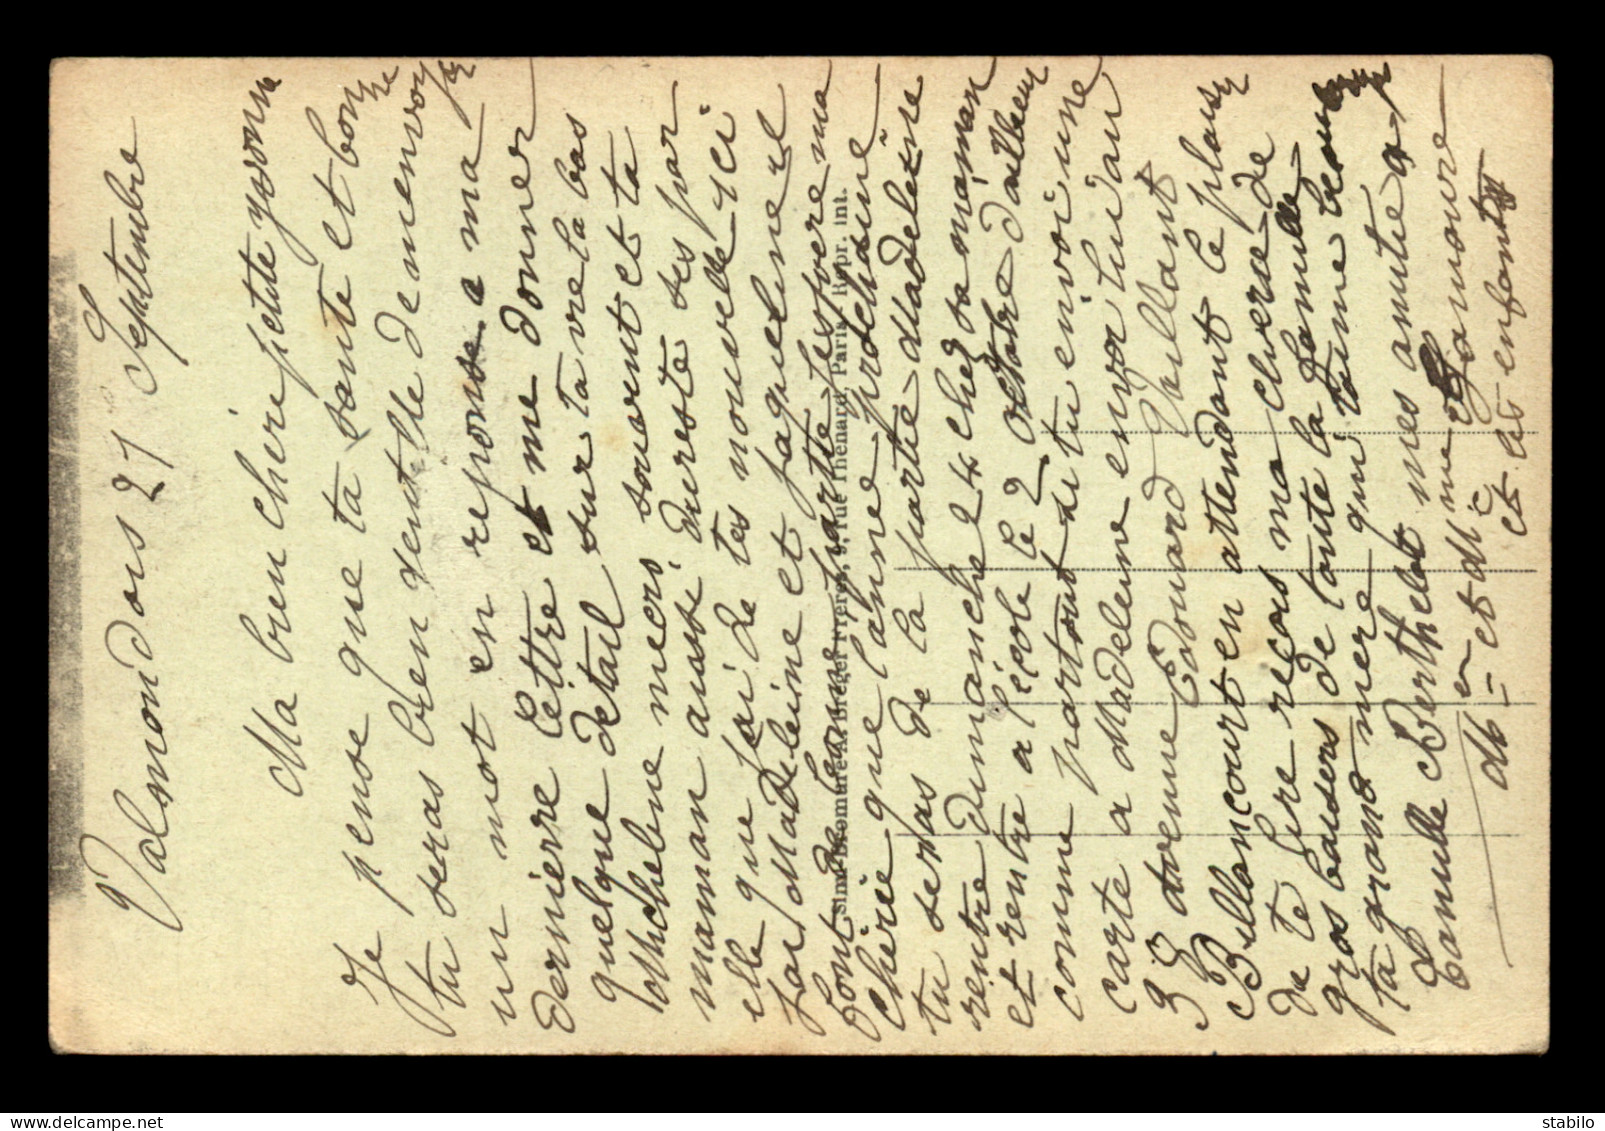 Valmondois 27 Septembre
Ma bien chère petite yvonne
Je pense que ta santé et bonne
tu seras bien gentille de menvoyer
un mot en reponse a ma
derniere lettre et me donner
quelque detail sur ta vie la bas
Micheline mecris souvent et ta
maman aussi dureste ses par
elle que jai de tes nouvelle ici
Madeleine et jaqueline se
jespere ma
cherie que lannee prochaine
tu seras de la partie Madeleine
rentre dimanche 24 chez sa maman
et rentre a lécole le 2 octobre dailleur
comme partout si tu envoi une
carte a Madeleine envoi lui au
3 avenue Edouard Vaillant
Billancourt en attendant le plaisir
de te lire recois ma cherie de
gros baisers de toute la famille
ta grand mere qui taime beaucoup
mes amitie a
famille Berthelot
Mr et Mme
Mr et Mme
et les enfants
Simi-Bromure A. Breger Frères, 9, rue Thénard, Paris Repr. int.
stabilo